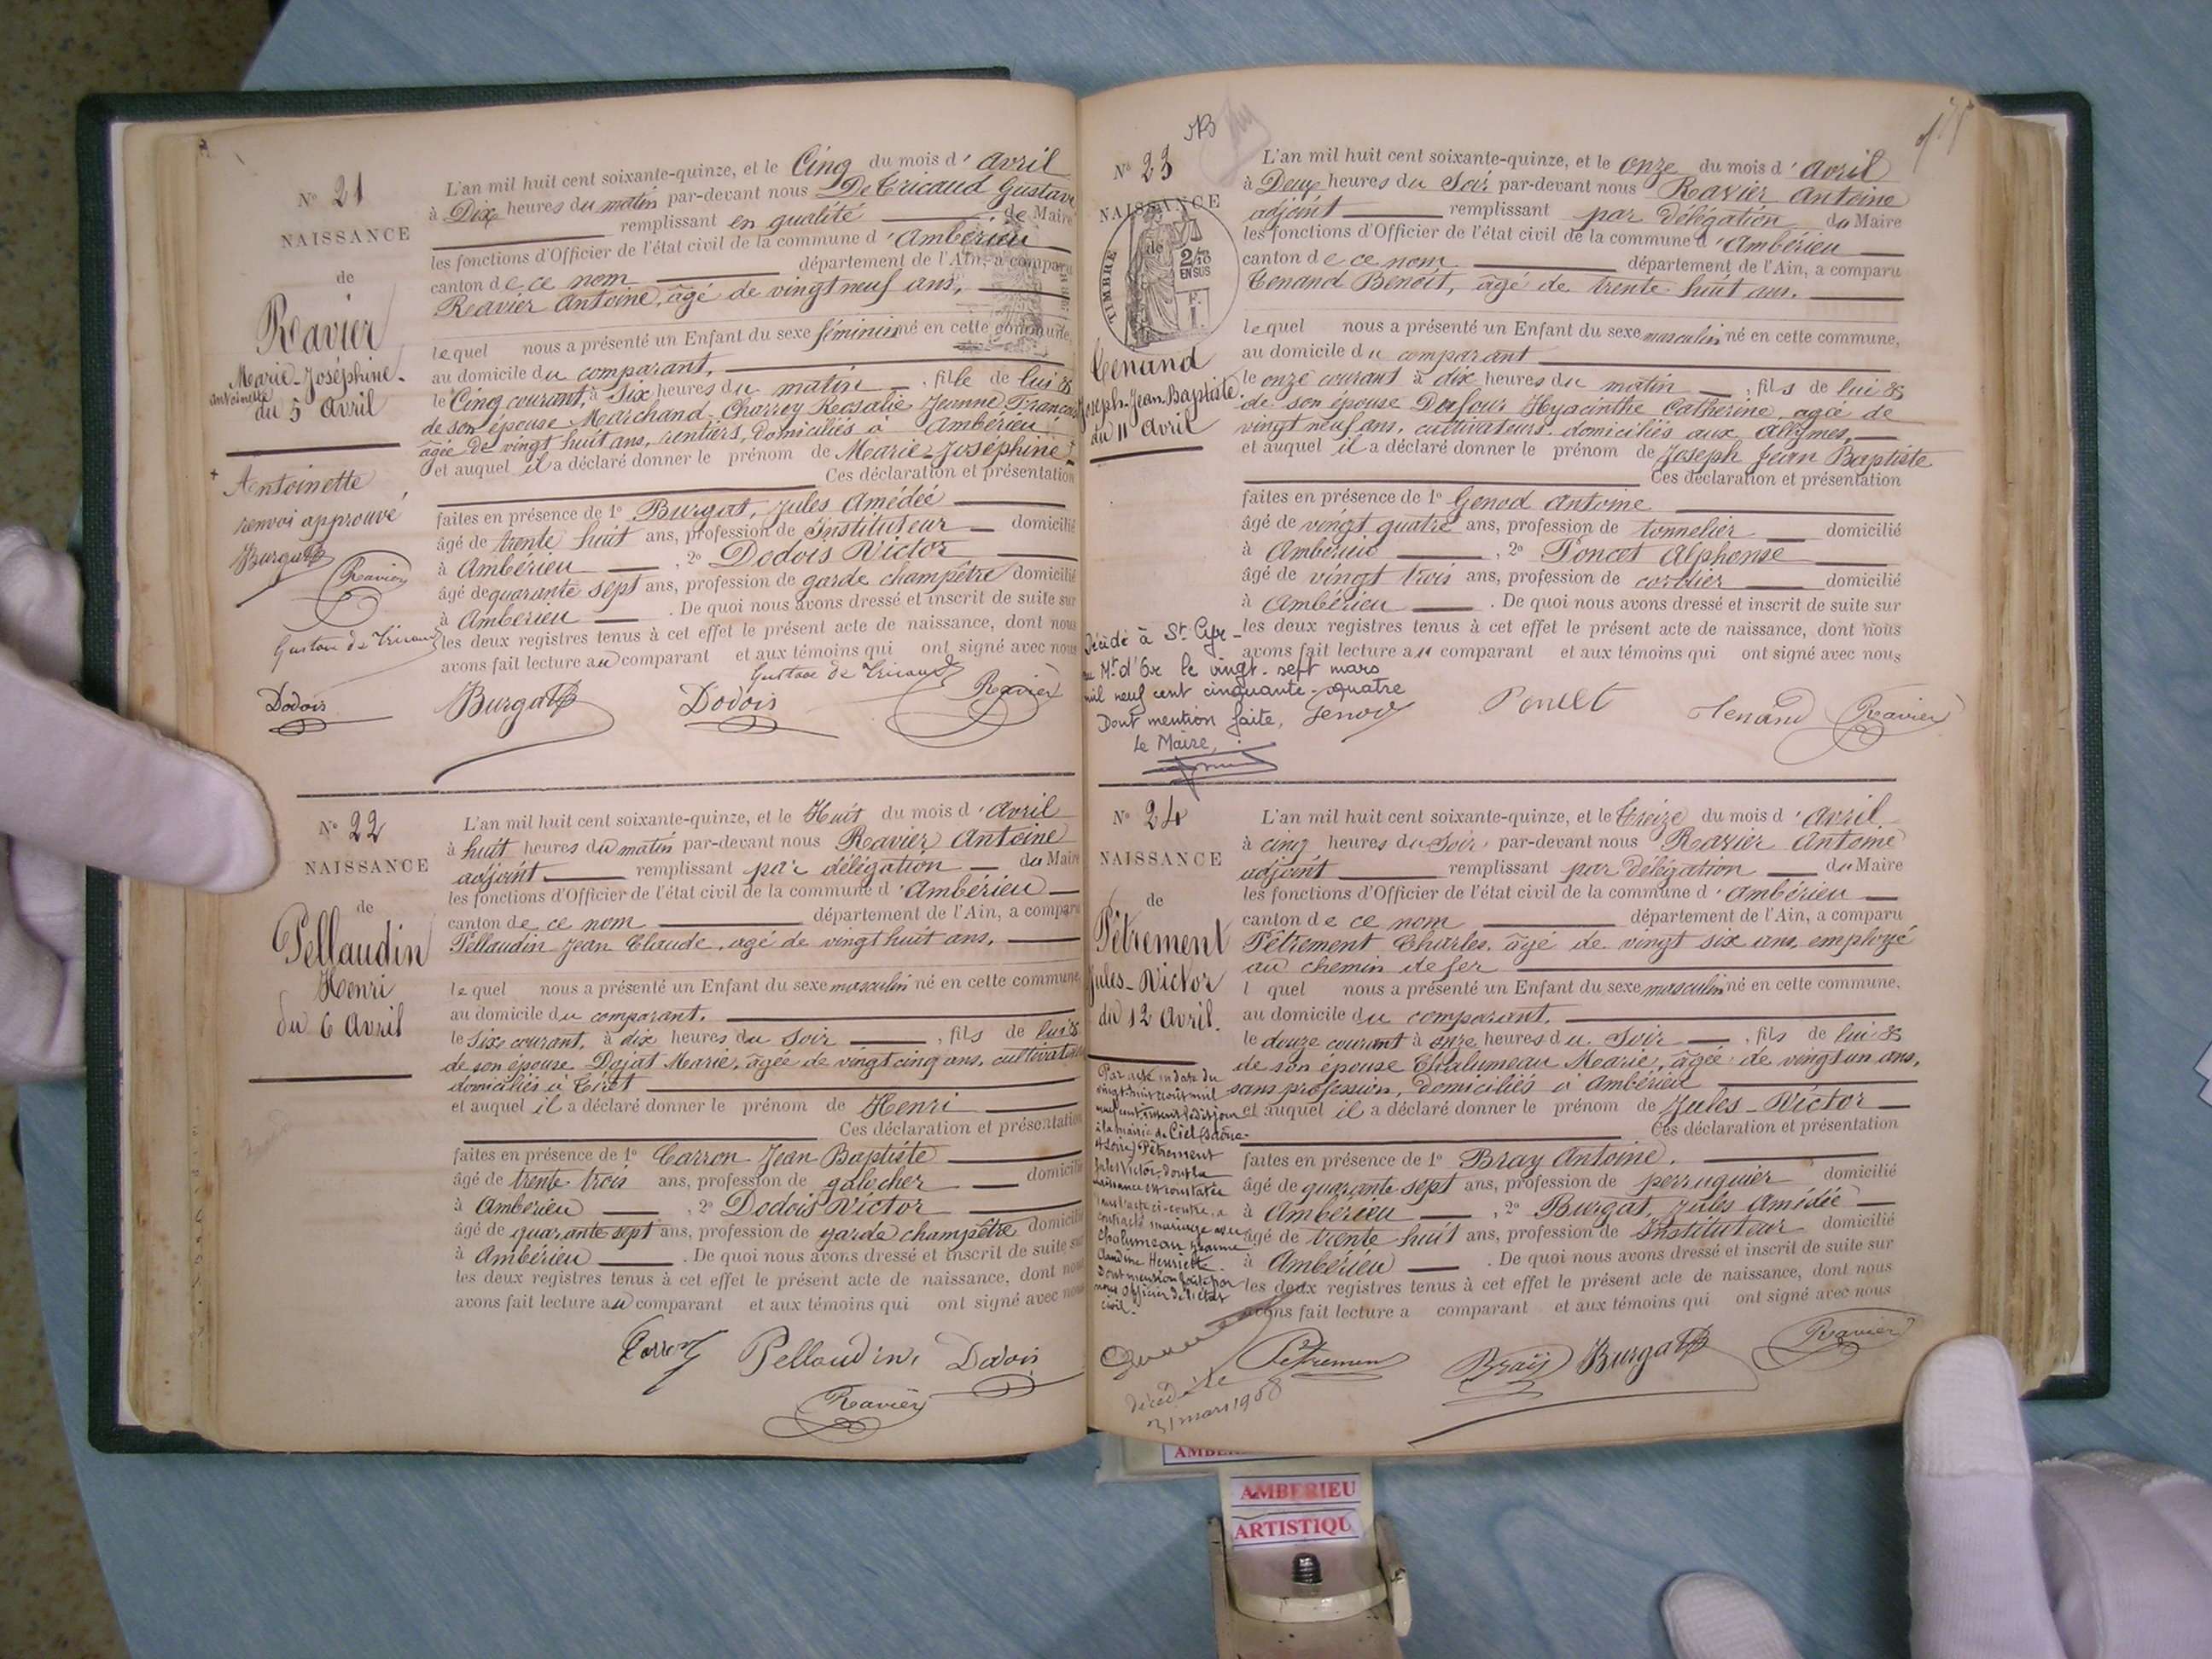 N° 21
NAISSANCE
de
Ravier
Marie-Joséphine-
antoinette
du 5 Avril
+ Antoinette
renvoi approuvé
Burgat
Ravier
Gustave de Tricaud
Dodois
L'an mil huit cent soixante-quinze, et le Cinq du mois d'avril
à Dix heures du matin par-devant nous De Tricaud Gustave
remplissant en qualité de Maire
les fonctions d'Officier de l'état civil de la commune d'Ambérieu
canton de ce nom département de l'Ain, a comparu
Ravier Antoine, âgé de vingt neuf ans,
lequel nous a présenté un Enfant du sexe féminin né en cette commune,
au domicile du comparant,
le Cinq courant, à six heures du matin, fille de lui &
de son épouse Marchand-Charrey Rosalie Jeanne
âgée de vingt huit ans, rentiers, domiciliés à Ambérieu
et auquel il a déclaré donner le prénom de Marie-Joséphine +
Ces déclaration et présentation
faites en présence de 1° Burgat, Jules Amédée
âgé de trente huit ans, profession de Instituteur domicilié
à Ambérieu, 2° Dodois Victor
âgé de quarante sept ans, profession de garde champêtre domicilié
à Ambérieu. De quoi nous avons dressé et inscrit de suite sur
les deux registres tenus à cet effet le présent acte de naissance, dont nous
avons fait lecture au comparant et aux témoins qui ont signé avec nous
Gustave de Tricaud
Burgat Dodois Ravier
N° 22
NAISSANCE
de
Pellaudin
Henri
du 6 Avril
L'an mil huit cent soixante-quinze, et le Huit du mois d'avril
à huit heures du matin par-devant nous Ravier Antoine
adjoint remplissant par délégation du Maire
les fonctions d'Officier de l'état civil de la commune d'Ambérieu
canton de ce nom département de l'Ain, a comparu
Pellaudin Jean Claude, agé de vingt huit ans,
lequel nous a présenté un Enfant du sexe masculin né en cette commune,
au domicile du comparant.
le Six courant, à dix heures du soir, fils de lui &
de son épouse Dajat Marie, âgée de vingt cinq ans, cultivateurs
domiciliés à Tiret
et auquel il a déclaré donner le prénom de Henri
Ces déclaration et présentation
faites en présence de 1° Carron Jean Baptiste
âgé de trente trois ans, profession de galocher domicilié
à Ambérieu, 2° Dodois Victor
âgé de quarante sept ans, profession de garde champêtre domicilié
à Ambérieu. De quoi nous avons dressé et inscrit de suite sur
les deux registres tenus à cet effet le présent acte de naissance, dont nous
avons fait lecture au comparant et aux témoins qui ont signé avec nous
Carron Pellaudin Dodois
Ravier
N° 23
NAISSANCE
de
TIMBRE
2/10
EN SUS
Tenand
Joseph-Jean-Baptiste
du 11 Avril
Décédé à St Cyr-
au Mt d'Or le vingt-sept mars
mil neuf cent cinquante-quatre
Dont mention faite,
Le Maire,
L'an mil huit cent soixante-quinze, et le onze du mois d'avril
à Deux heures du Soir par-devant nous Ravier Antoine
adjoint remplissant par délégation du Maire
les fonctions d'Officier de l'état civil de la commune d'Ambérieu
canton de ce nom département de l'Ain, a comparu
Tenand Benoît, âgé de trente huit ans.
lequel nous a présenté un Enfant du sexe masculin né en cette commune,
au domicile du comparant
le onze courant à dix heures du matin, fils de lui &
de son épouse Dufour Hyacinthe Catherine, agée de
vingt neuf ans, cultivateurs domiciliés aux allymes,
et auquel il a déclaré donner le prénom de Joseph Jean Baptiste
Ces déclaration et présentation
faites en présence de 1° Genod Antoine
âgé de vingt quatre ans, profession de tonnelier domicilié
à Ambérieu, 2° Poncet Alphonse
âgé de vingt trois ans, profession de cordier domicilié
à Ambérieu. De quoi nous avons dressé et inscrit de suite sur
les deux registres tenus à cet effet le présent acte de naissance, dont nous
avons fait lecture au comparant et aux témoins qui ont signé avec nous
Genod Poncet Tenand Ravier
N° 24
NAISSANCE
de
Pêtrement
Jules-Victor
du 12 Avril.
Par acte en date du
vingt-huit août mil
neuf cent
à la mairie de Ciel (Saône-
et-Loire) Pêtrement
Jules Victor, dont la
naissance est constatée
dans l'acte ci-contre, a
contracté mariage avec
Chalumeau Jeanne
Claudine Henriette.
Dont mention faite par
nous Officier de l'état
civil.
décédé le
31 mars 1908
L'an mil huit cent soixante-quinze, et le Treize du mois d'avril
à cinq heures du Soir par-devant nous Ravier Antoine
adjoint remplissant par délégation du Maire
les fonctions d'Officier de l'état civil de la commune d'Ambérieu
canton de ce nom département de l'Ain, a comparu
Pêtrement Charles, âgé de vingt six ans, employé
au chemin de fer
l quel nous a présenté un Enfant du sexe masculin né en cette commune,
au domicile du comparant.
le douze courant à onze heures du Soir, fils de lui &
de son épouse Chalumeau Marie, âgée de vingt un ans,
sans profession, domiciliés à Ambérieu
et auquel il a déclaré donner le prénom de Jules-Victor
Ces déclaration et présentation
faites en présence de 1° Bray Antoine.
âgé de quarante sept ans, profession de perruquier domicilié
à Ambérieu, 2° Burgat, Jules Amédée
âgé de trente huit ans, profession de Instituteur domicilié
à Ambérieu. De quoi nous avons dressé et inscrit de suite sur
les deux registres tenus à cet effet le présent acte de naissance, dont nous
avons fait lecture a comparant et aux témoins qui ont signé avec nous
Pêtrement Bray Burgat Ravier
AMBERIEU
ARTISTIQU